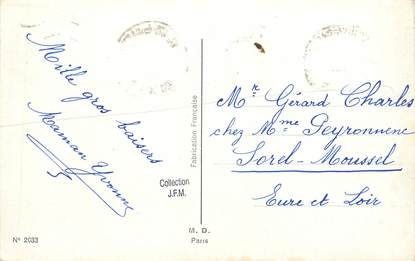 Mille gros baisers
Maman Yvonne
Collection
J.F.M.
N° 2033
Fabrication Française
M. D.
Paris
Mr Gérard Charles
chez Mme Peyronnenc
Sorel-Moussel
Eure et Loir